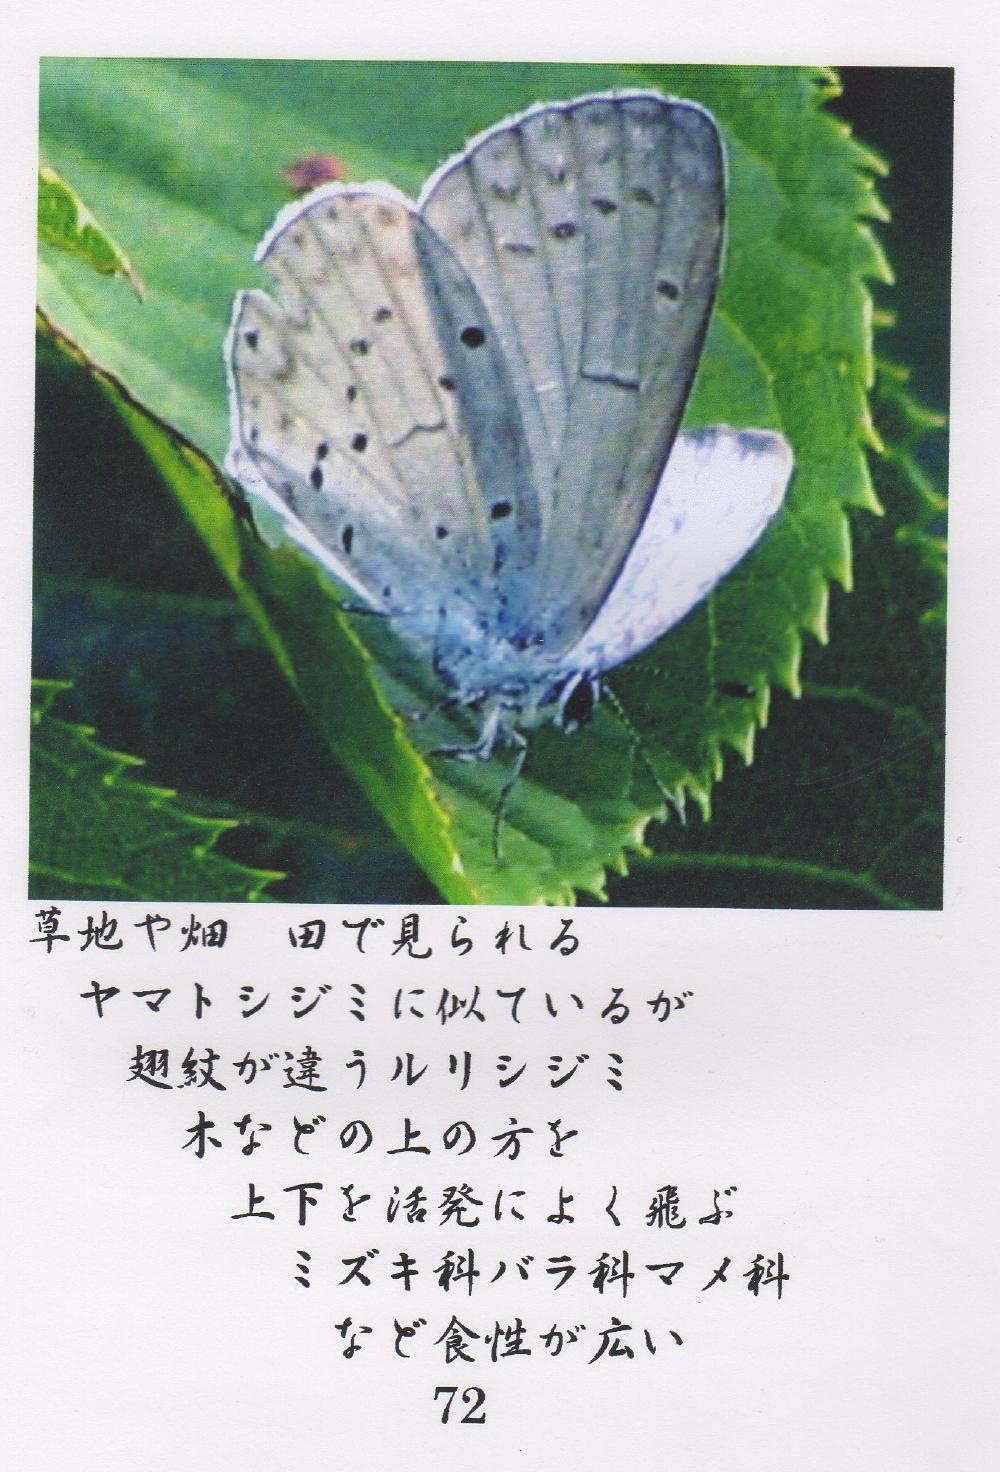 草地や畑　田で見られる
ヤマトシジミに似ているが
翅紋が違うルリシジミ
木などの上の方を
上下を活発によく飛ぶ
ミズキ科バラ科マメ科
など食性が広い
72